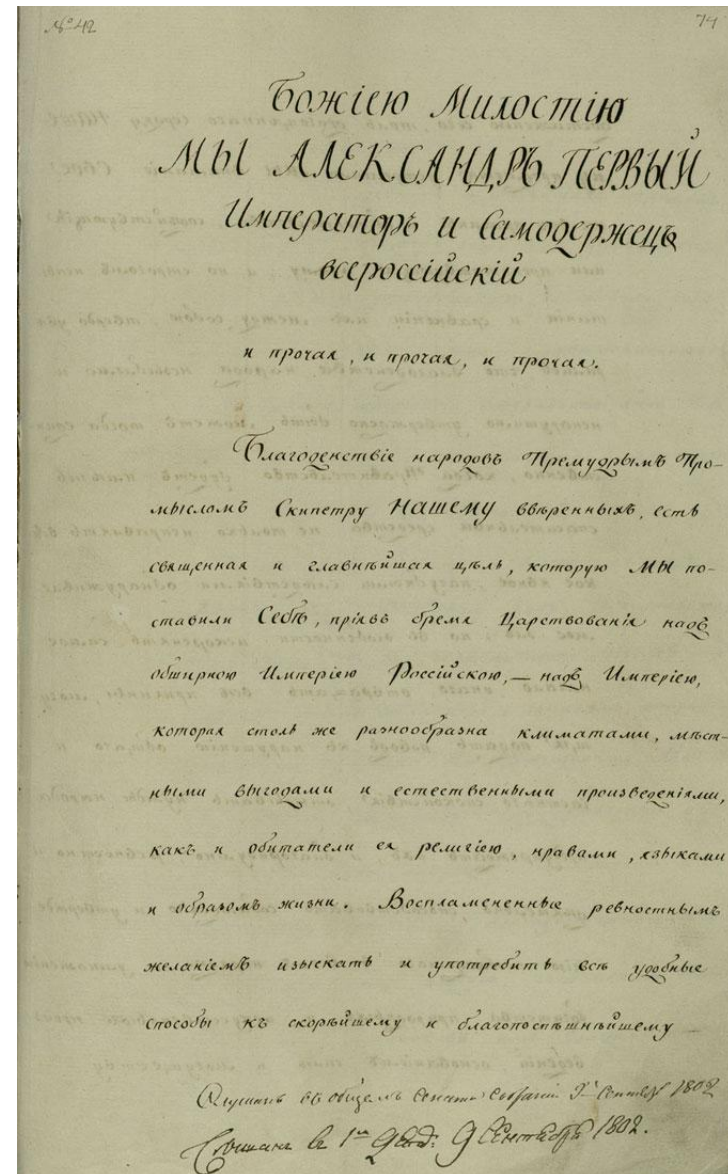 № 42
74
Божіею Милостію
МЫ АЛЕКСАНДРЪ ПЕРВЫЙ
Императоръ и Самодержецъ
всероссійскій
и прочая, и прочая, и прочая.
Благоденствіе народовъ Премудрымъ Про-
мысломъ Скипетру НАШЕМУ ввѣренныхъ, есть
священная и главнѣйшая цѣль, которую МЫ по-
ставили Себѣ, пріявъ бремя Царствованія надъ
обширною Имперіею Россійскою, — надъ Имперіею,
которая столь же разнообразна климатами, мѣст-
ными выгодами и естественными произведеніями,
какъ и обитатели ея религіею, нравами, языками
и образомъ жизни. Воспламененные ревностнымъ
желаніемъ изыскать и употребить всѣ удобные
способы къ скорѣйшему и благопоспѣшнѣйшему
въ общемъ Сената Собраніи 9 Сентября 1802
въ 1м 9 Сентября 1802.